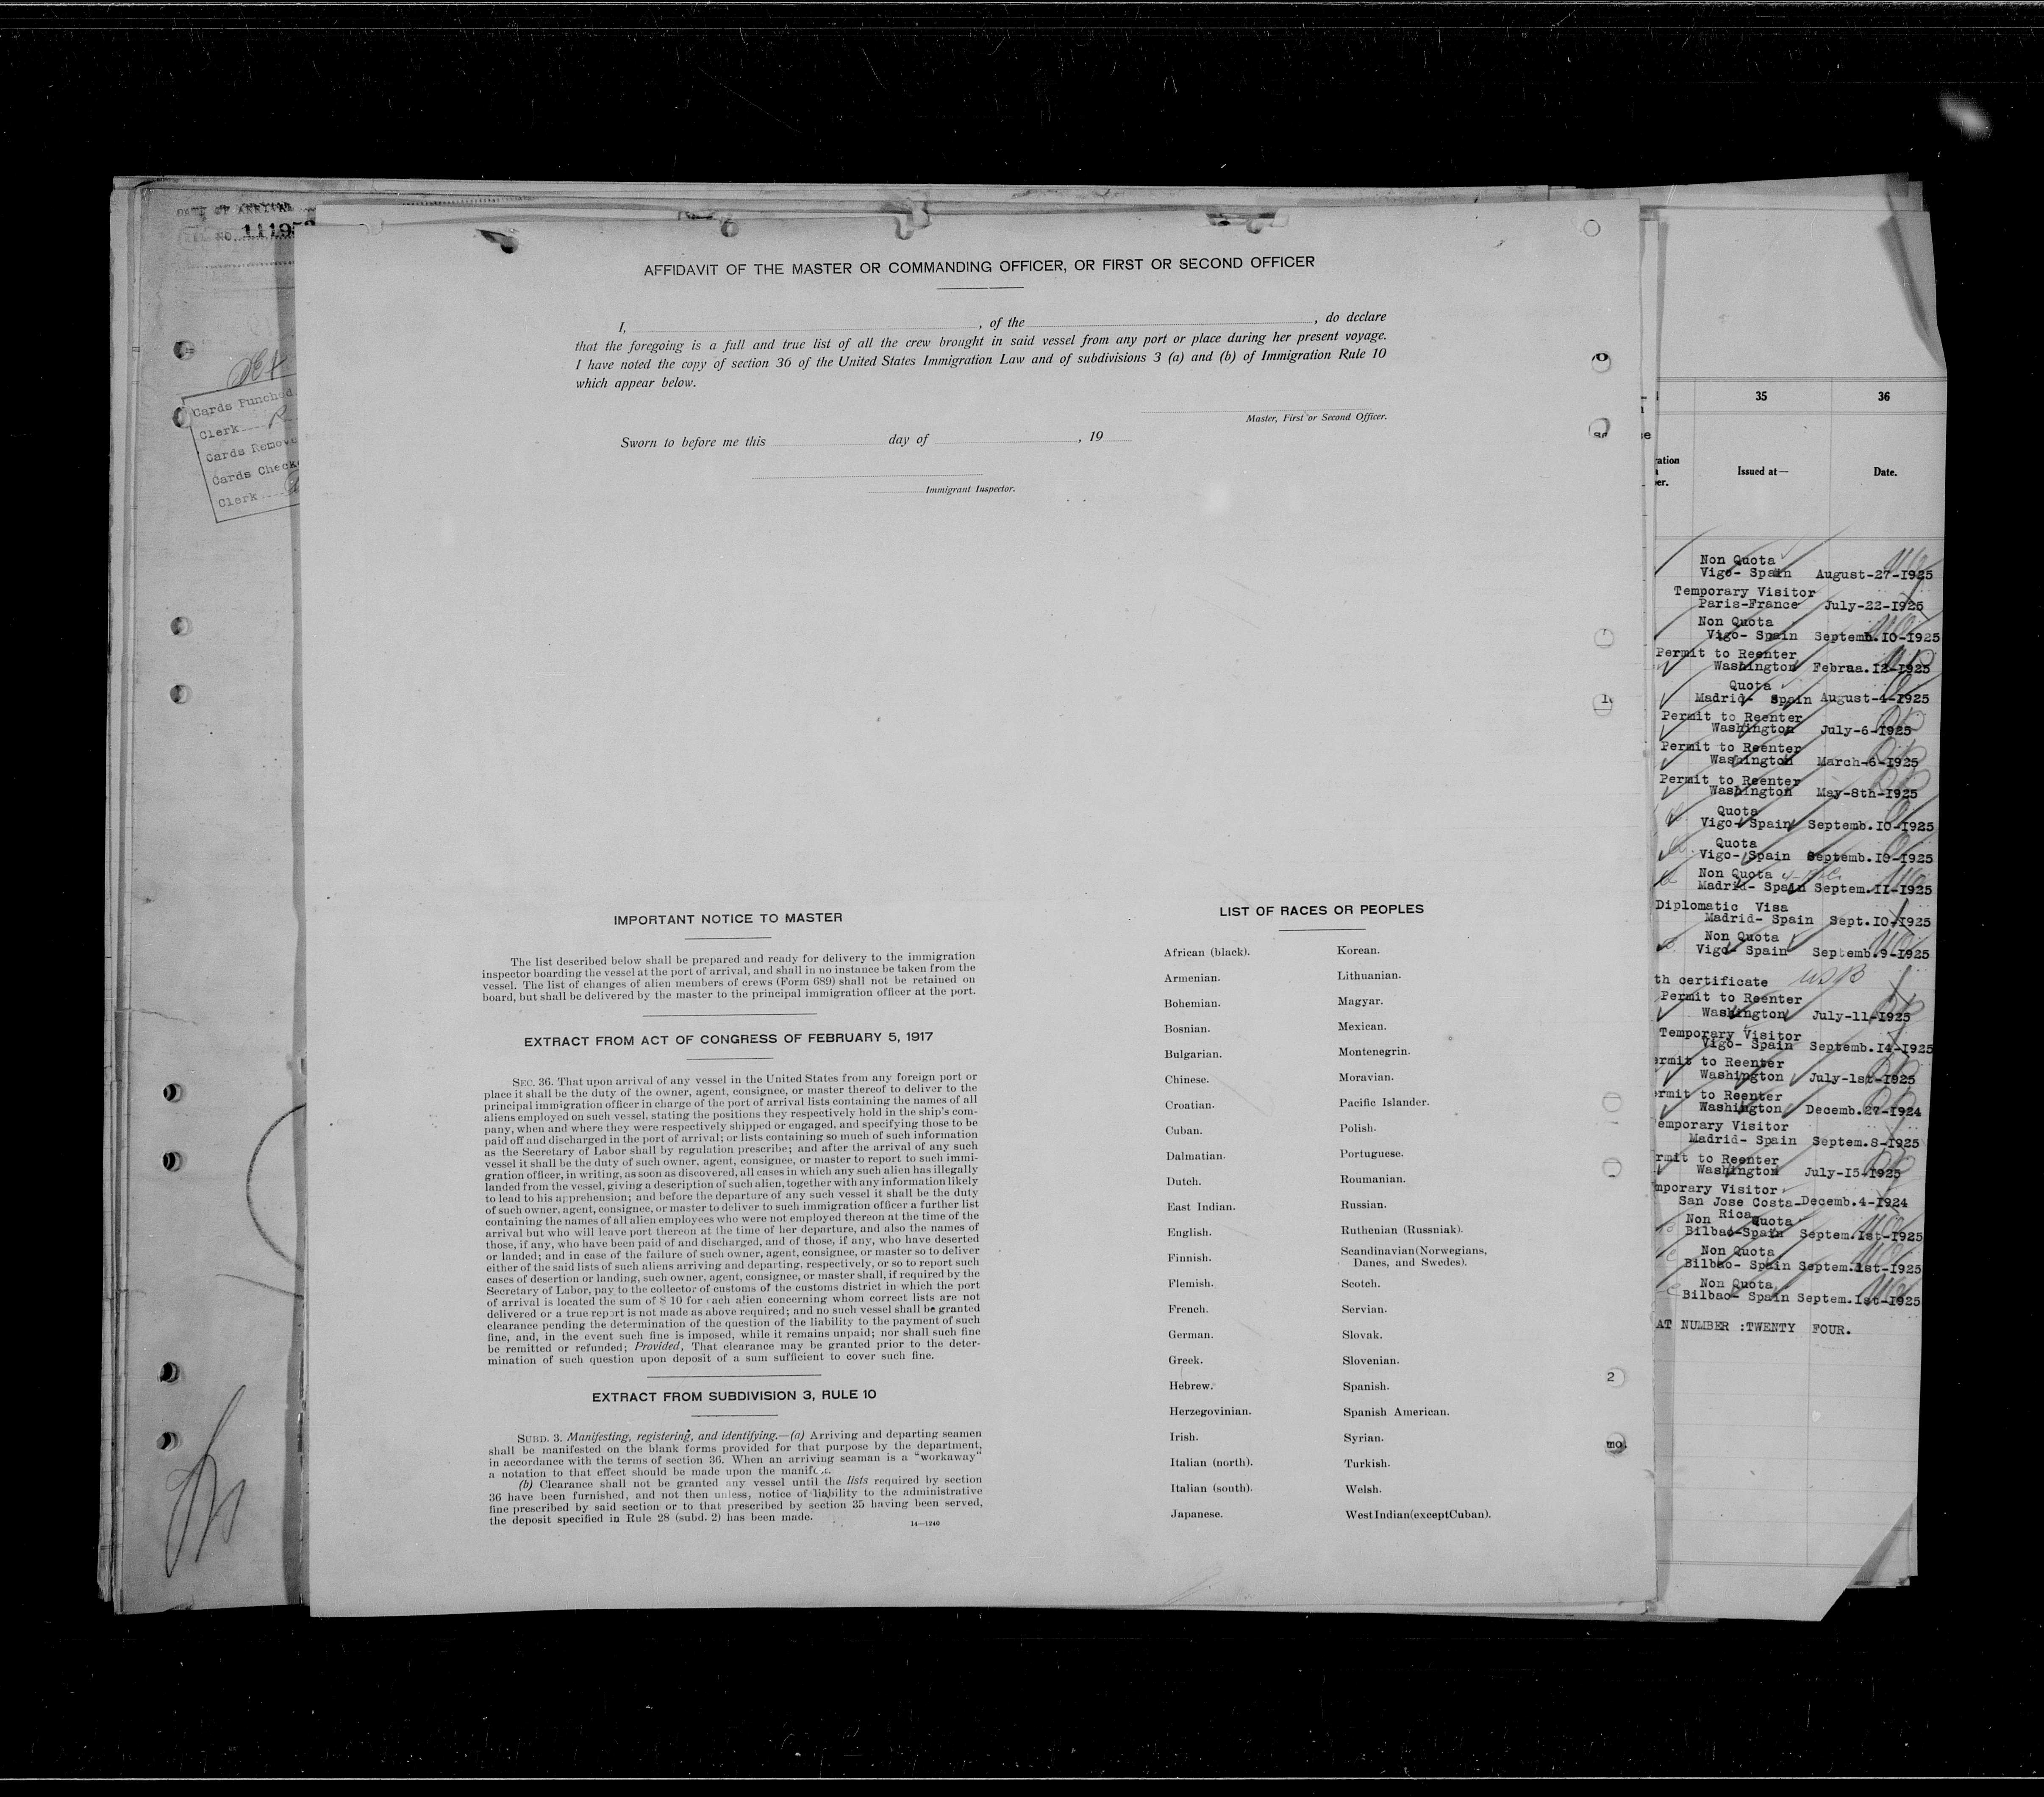 DATE OF ARRIVAL
NO. 11195
Cards Punched
Clerk
Cards Remove
Cards Check
Clerk
AFFIDAVIT OF THE MASTER OR COMMANDING OFFICER, OR FIRST OR SECOND OFFICER
I, , of the , do declare
that the foregoing is a full and true list of all the crew brought in said vessel from any port or place during her present voyage.
I have noted the copy of section 36 of the United States Immigration Law and of subdivisions 3 (a) and (b) of Immigration Rule 10
which appear below.
Master, First or Second Officer.
Sworn to before me this day of , 19
Immigrant Inspector.
IMPORTANT NOTICE TO MASTER
The list described below shall be prepared and ready for delivery to the immigration
inspector boarding the vessel at the port of arrival, and shall in no instance be taken from the
vessel. The list of changes of alien members of crews (Form 689) shall not be retained on
board, but shall be delivered by the master to the principal immigration officer at the port.
EXTRACT FROM ACT OF CONGRESS OF FEBRUARY 5, 1917
SEC. 36. That upon arrival of any vessel in the United States from any foreign port or
place it shall be the duty of the owner, agent, consignee, or master thereof to deliver to the
principal immigration officer in charge of the port of arrival lists containing the names of all
aliens employed on such vessel, stating the positions they respectively hold in the ship's com-
pany, when and where they were respectively shipped or engaged, and specifying those to be
paid off and discharged in the port of arrival; or lists containing so much of such information
as the Secretary of Labor shall by regulation prescribe; and after the arrival of any such
vessel it shall be the duty of such owner, agent, consignee, or master to report to such immi-
gration officer, in writing, as soon as discovered, all cases in which any such alien has illegally
landed from the vessel, giving a description of such alien, together with any information likely
to lead to his apprehension; and before the departure of any such vessel it shall be the duty
of such owner, agent, consignee, or master to deliver to such immigration officer a further list
containing the names of all alien employees who were not employed thereon at the time of the
arrival but who will leave port thereon at the time of her departure, and also the names of
those, if any, who have been paid of and discharged, and of those, if any, who have deserted
or landed; and in case of the failure of such owner, agent, consignee, or master so to deliver
either of the said lists of such aliens arriving and departing, respectively, or so to report such
cases of desertion or landing, such owner, agent, consignee, or master shall, if required by the
Secretary of Labor, pay to the collector of customs of the customs district in which the port
of arrival is located the sum of $ 10 for each alien concerning whom correct lists are not
delivered or a true report is not made as above required; and no such vessel shall be granted
clearance pending the determination of the question of the liability to the payment of such
fine, and, in the event such fine is imposed, while it remains unpaid; nor shall such fine
be remitted or refunded; Provided, That clearance may be granted prior to the deter-
mination of such question upon deposit of a sum sufficient to cover such fine.
EXTRACT FROM SUBDIVISION 3, RULE 10
SUBD. 3. Manifesting, registering, and identifying.—(a) Arriving and departing seamen
shall be manifested on the blank forms provided for that purpose by the department,
in accordance with the terms of section 36. When an arriving seaman is a "workaway"
a notation to that effect should be made upon the manifest.
(b) Clearance shall not be granted any vessel until the lists required by section
36 have been furnished, and not then unless, notice of liability to the administrative
fine prescribed by said section or to that prescribed by section 35 having been served,
the deposit specified in Rule 28 (subd. 2) has been made.
14—1240
LIST OF RACES OR PEOPLES
African (black).
Armenian.
Bohemian.
Bosnian.
Bulgarian.
Chinese.
Croatian.
Cuban.
Dalmatian.
Dutch.
East Indian.
English.
Finnish.
Flemish.
French.
German.
Greek.
Hebrew.
Herzegovinian.
Irish.
Italian (north).
Italian (south).
Japanese.
Korean.
Lithuanian.
Magyar.
Mexican.
Montenegrin.
Moravian.
Pacific Islander.
Polish.
Portuguese.
Roumanian.
Russian.
Ruthenian (Russniak).
Scandinavian(Norwegians,
Danes, and Swedes).
Scotch.
Servian.
Slovak.
Slovenian.
Spanish.
Spanish American.
Syrian.
Turkish.
Welsh.
WestIndian(exceptCuban).
2
mo.
35 36
Issued at— Date.
Non Quota
Vigo- Spain August-27-1925
Temporary Visitor
Paris-France July-22-1925
Non Quota
Vigo- Spain Septemb.10-1925
Permit to Reenter
Washington Febraa.12-1925
Quota
Madrid- Spain August-4-1925
Permit to Reenter
Washington July-6-1925
Permit to Reenter
Washington March-6-1925
Permit to Reenter
Washington May-8th-1925
Quota
Vigo- Spain Septemb.10-1925
Quota
Vigo- Spain Septemb.10-1925
Non Quota
Madrid- Spain Septem.11-1925
Diplomatic Visa
Madrid- Spain Sept.10-1925
Non Quota
Vigo- Spain Septemb.9-1925
th certificate USB
Permit to Reenter
Washington July-11-1925
Temporary Visitor
Vigo- Spain Septemb.14-1925
ermit to Reenter
Washington July-1st-1925
ermit to Reenter
Washington Decemb.27-1924
emporary Visitor
Madrid- Spain Septem.8-1925
rmit to Reenter
Washington July-15-1925
mporary Visitor
San Jose Costa-Decemb.4-1924
Rica
Non Quota
Bilbao-Spain Septem.1st-1925
Non Quota
Bilbao- Spain Septem.1st-1925
Non Quota
Bilbao- Spain Septem.1st-1925
AT NUMBER :TWENTY FOUR.